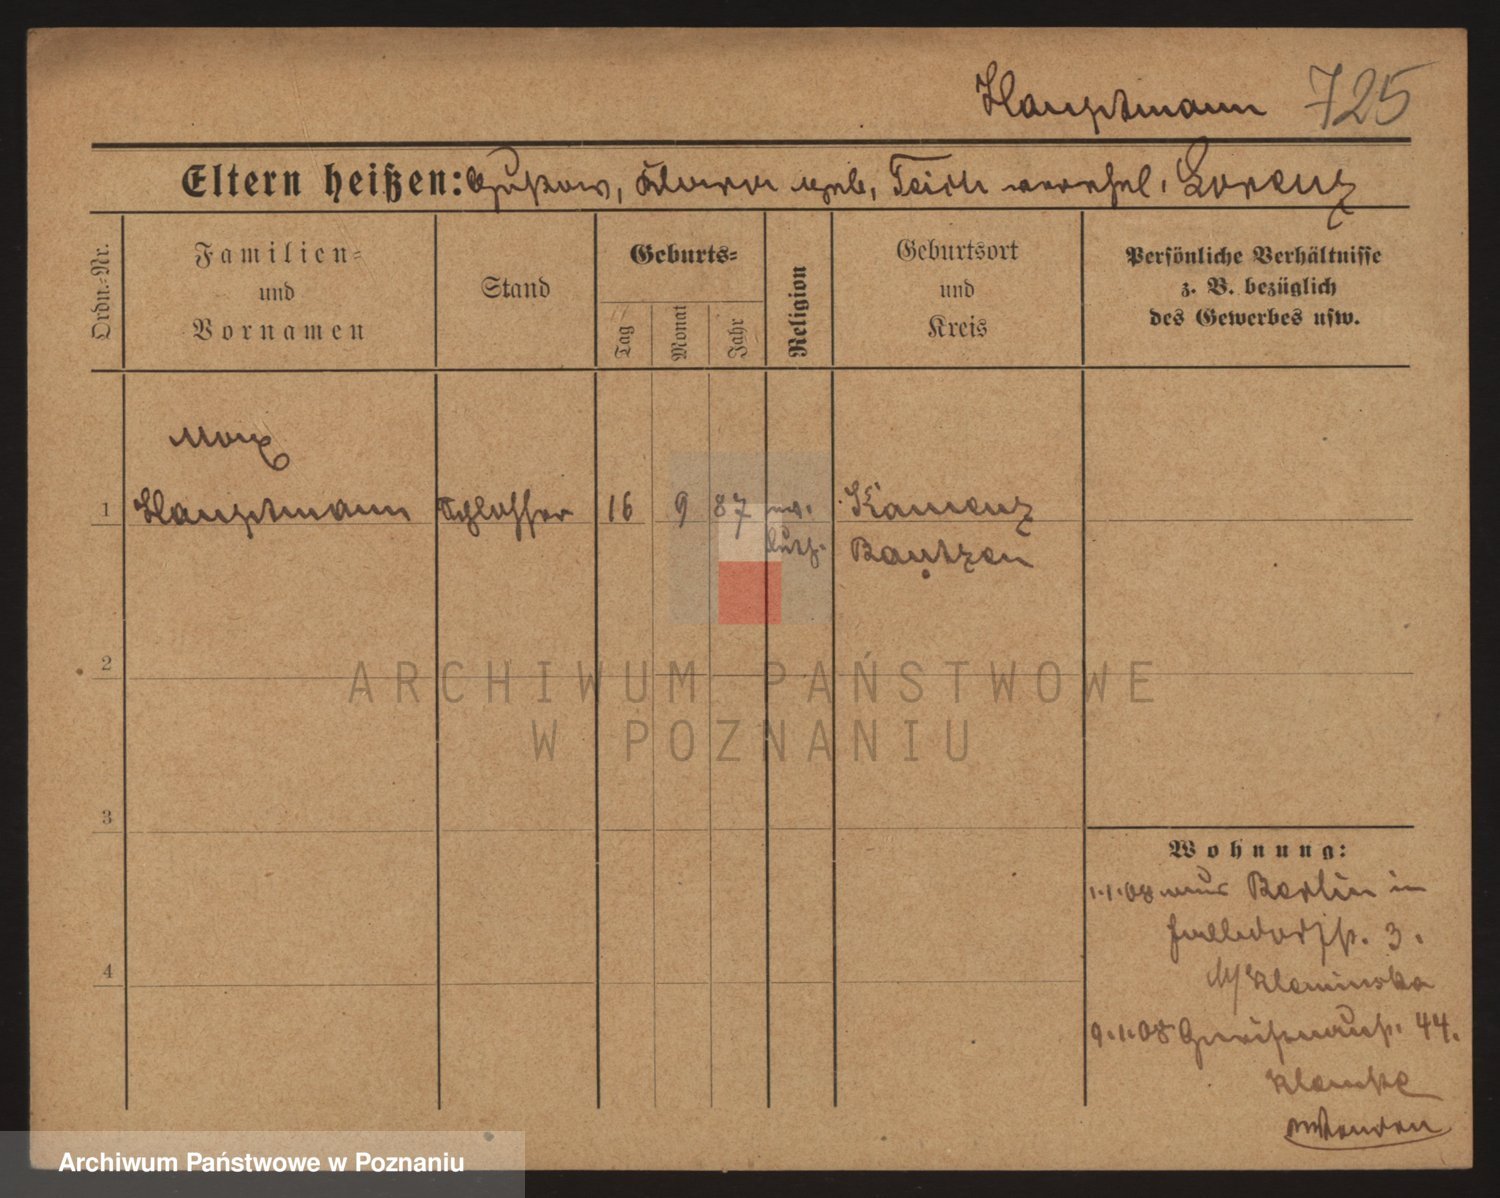 Hauptmann 725
Eltern heißen: Gustav, Klara geb. Teich verehel. Lorenz
Ordn.-Nr.
Familien-
und
Vornamen
Stand
Geburts-
Tag
Monat
Jahr
Religion
Geburtsort
und
Kreis
Persönliche Verhältnisse
z. B. bezüglich
des Gewerbes usw.
Max
1 Hauptmann Schlosser 16 9 87 ev. Kamenz
luth. Bautzen
2
ARCHIWUM PAŃSTWOWE
W POZNANIU
3
Wohnung:
1.1.08 aus Berlin in
3.
4
9.1.08 44.
Archiwum Państwowe w Poznaniu